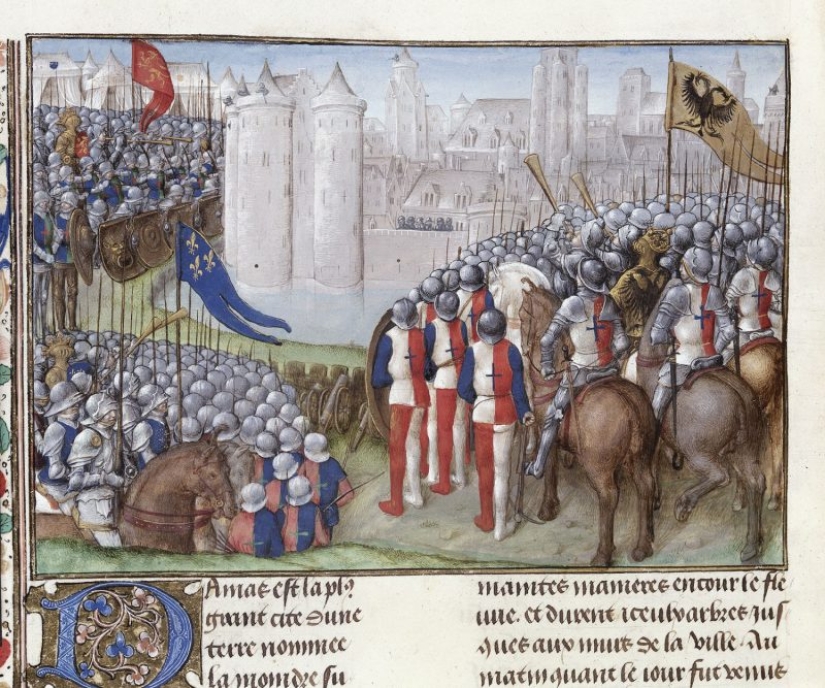 Damas est la pl9
grant cite dune
terre nommee
la moindre su
maintes manieres en tour le fle
uue. et durent iceulx arbres jus
ques aux murs de la ville. Au
matin quant le iour fut venus